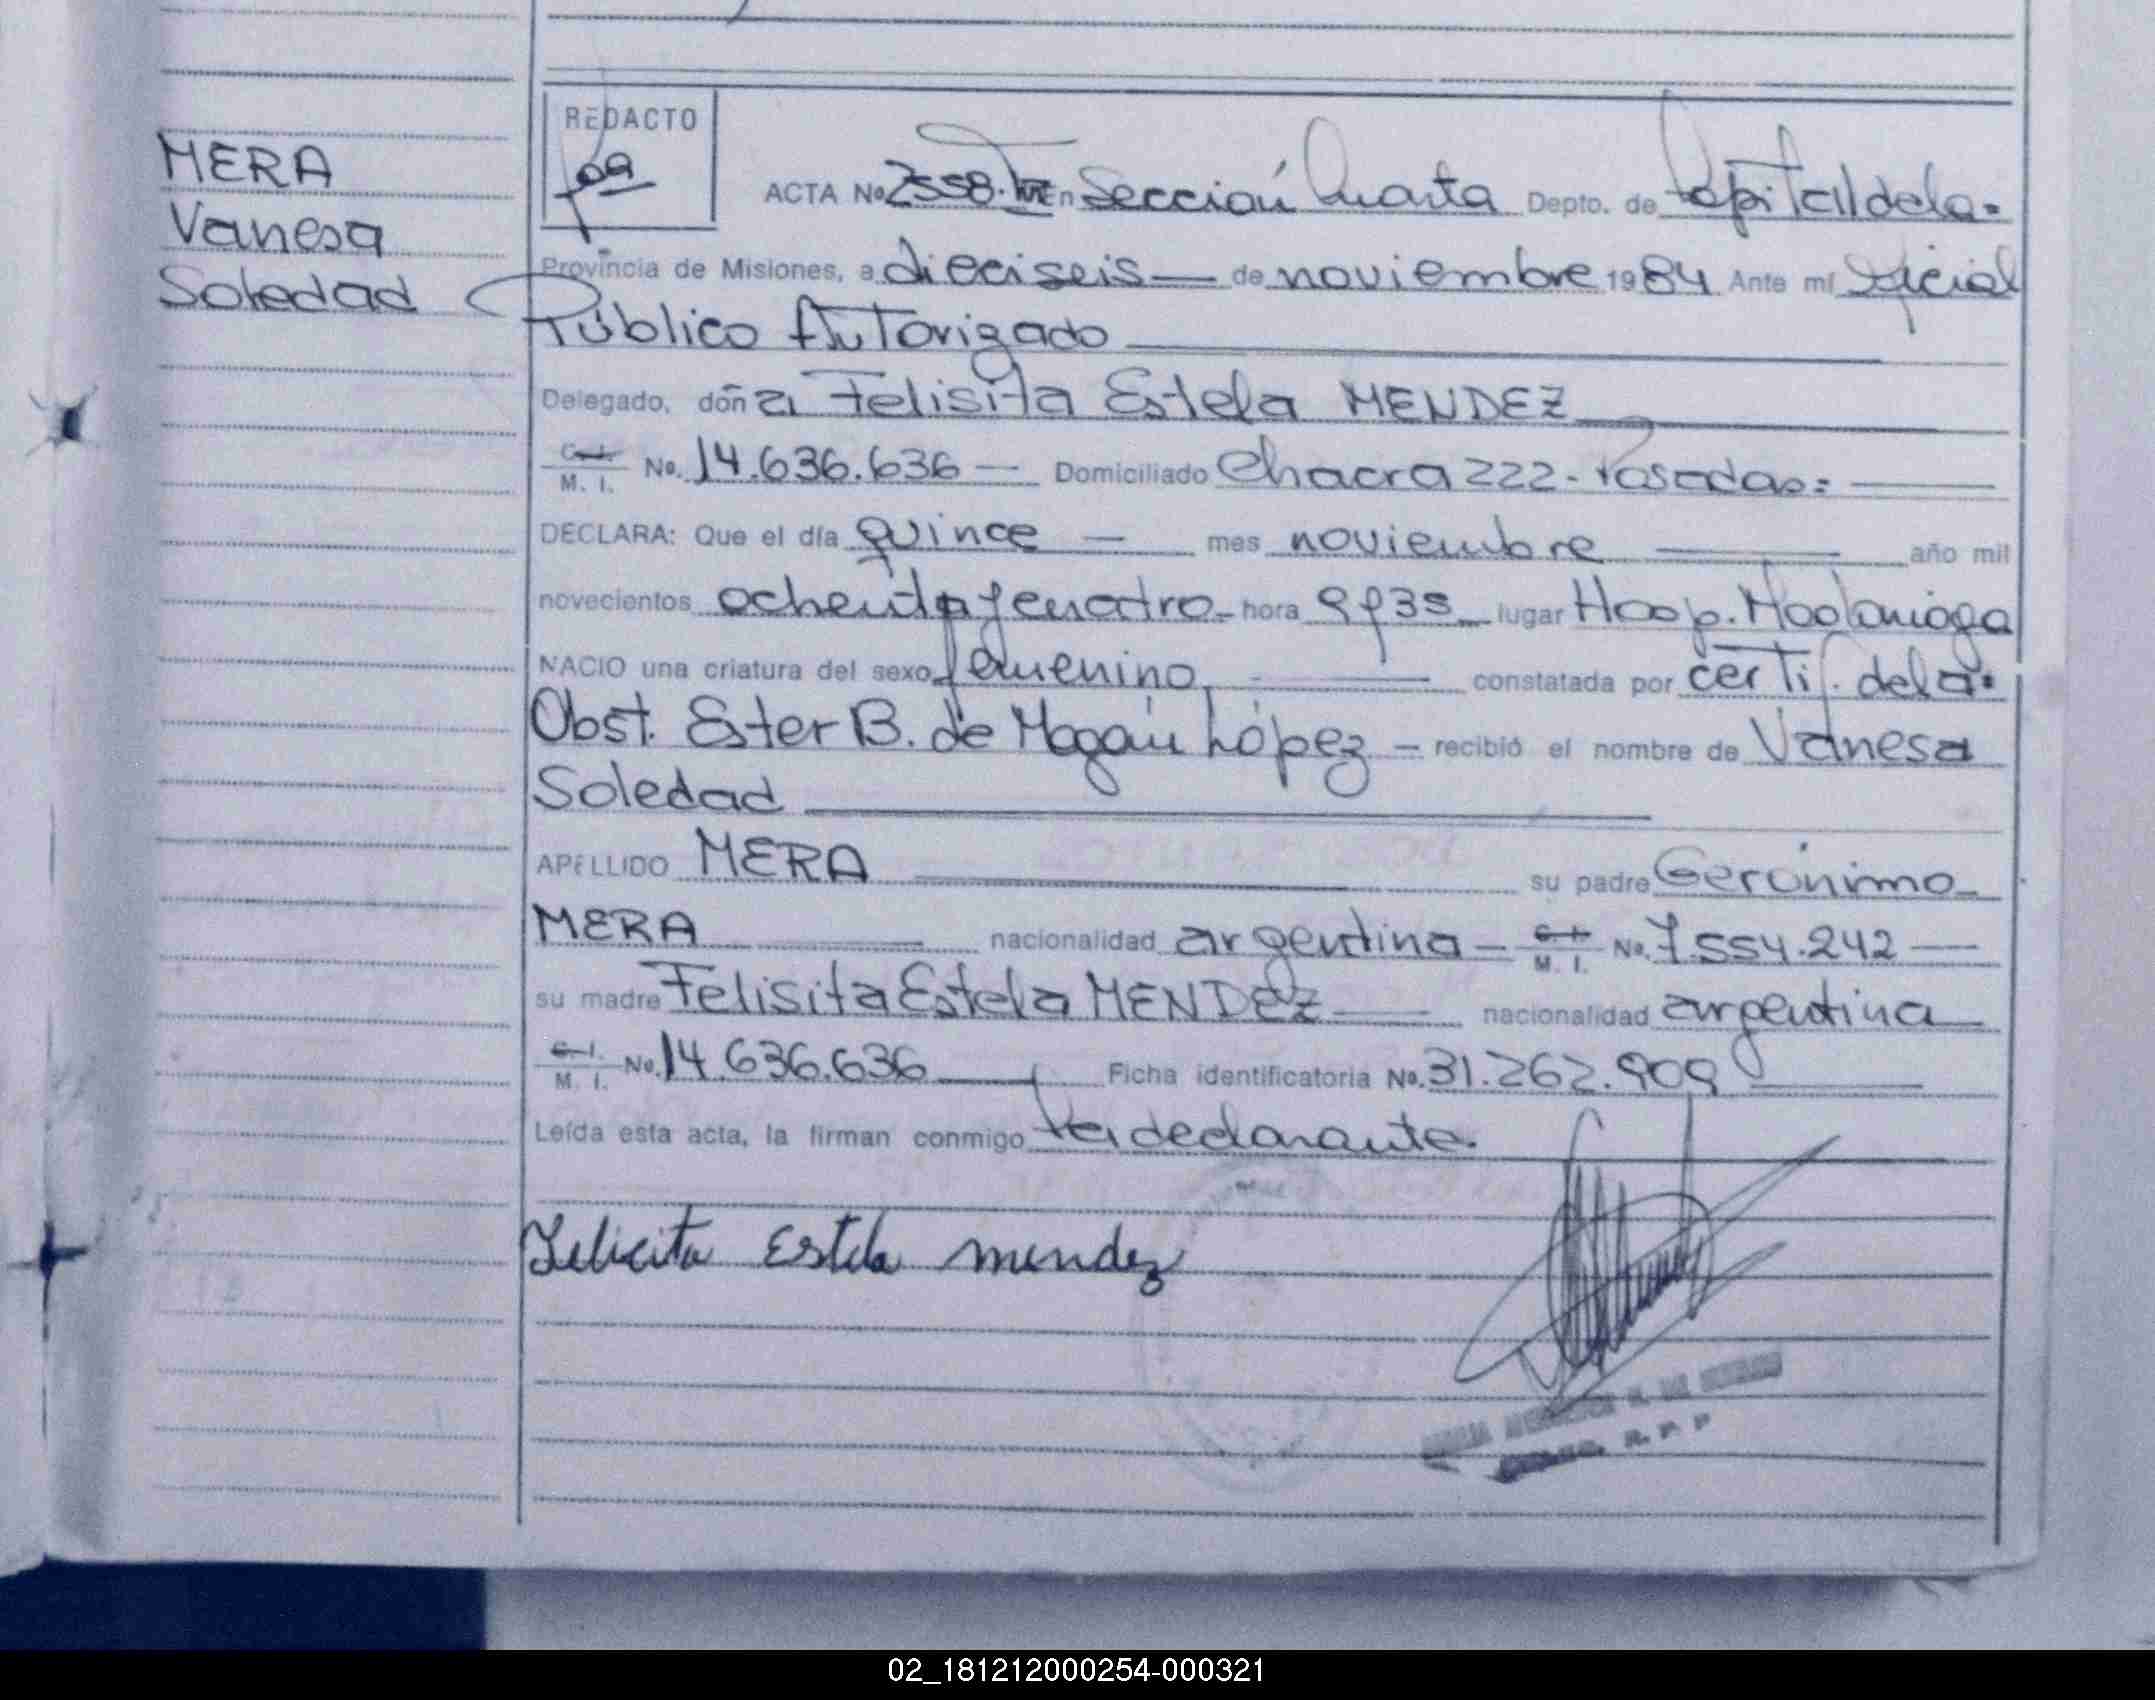 MERA
Vanesa
Soledad
REDACTO
ACTA No 2558. En Sección Cuarta Depto. de Capital de la.
Provincia de Misiones, a dieciseis de noviembre 1984 Ante mí Oficial
Público Autorizado
Delegado, doña Felisita Estela MENDEZ
C. I.
M. I. No. 14.636.636 — Domiciliado Chacra 222 - Posadas.
DECLARA: Que el día quince — mes noviembre año mil
novecientos ochenta y cuatro - hora 9 y 35 lugar Hosp. Madariaga
NACIO una criatura del sexo femenino constatada por certif. de la
Obst. Ester B. de Magán López - recibió el nombre de Vanesa
Soledad
APELLIDO MERA su padre Gerónimo
MERA nacionalidad argentina - C. I. M. I. No. 7.554.242
su madre Felisita Estela MENDEZ nacionalidad argentina
C. I. M. I. No. 14.636.636 Ficha identificatoria No. 31.262.909
Leída esta acta, la firman conmigo la declarante.
Felicita Estela mendez
R. P. P
02_181212000254-000321